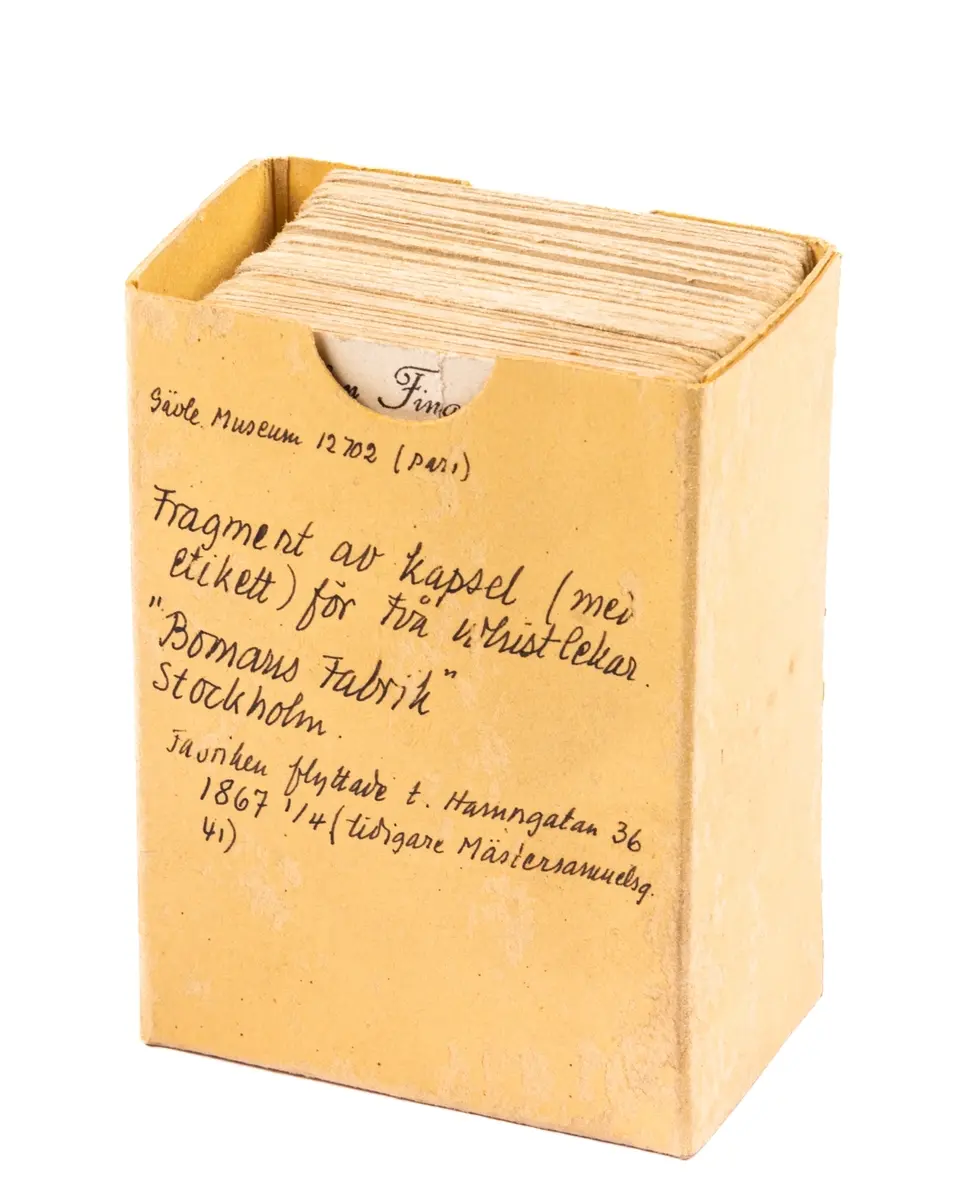 Fing
Gävle Museum 12702 (par1)
Fragment av kapsel (med
etikett) för två whistlekar.
"Bomans Fabrik"
Stockholm.
Fabriken flyttade t. Hamngatan 36
1867 1/4 (tidigare Mästersamuelsg.
41)